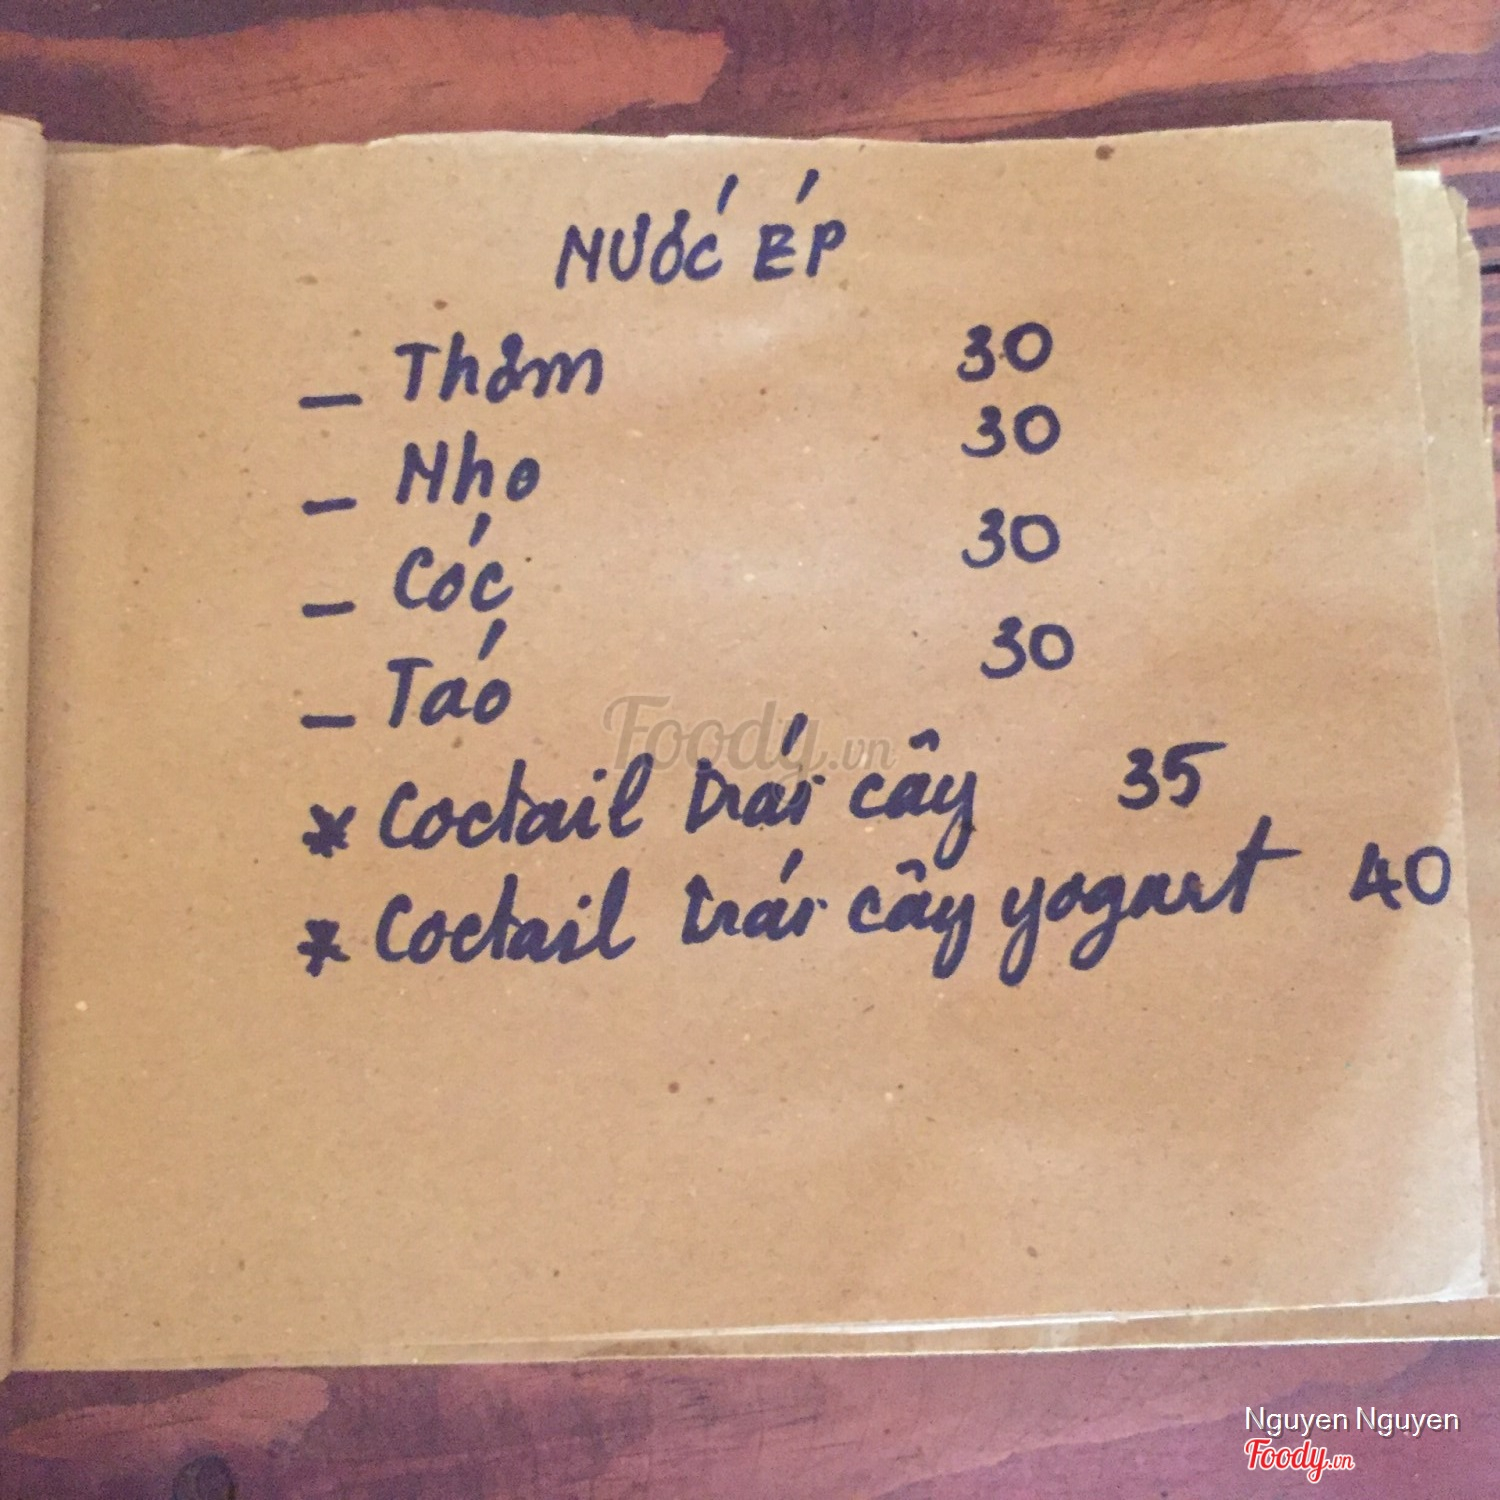 NƯỚC ÉP
- Thơm 30
- Nho 30
- Cóc 30
- Táo 30
* Coctail trái cây 35
* Coctail trái cây yogurt 40
Foody.vn
Nguyen Nguyen
Foody.vn